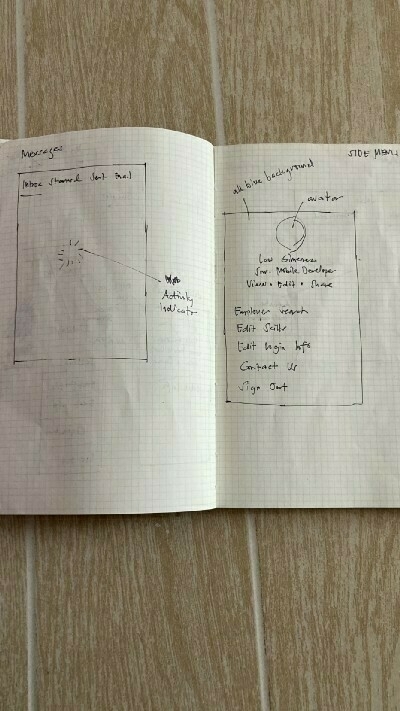 Messages
Inbox Starred Sent
Activity
indicator
SIDE MENU
all blue background
avatar
Mobile Developer
View • Edit • Share
Employer Search
Edit Skills
Edit Login Info
Contact Us
Sign Out